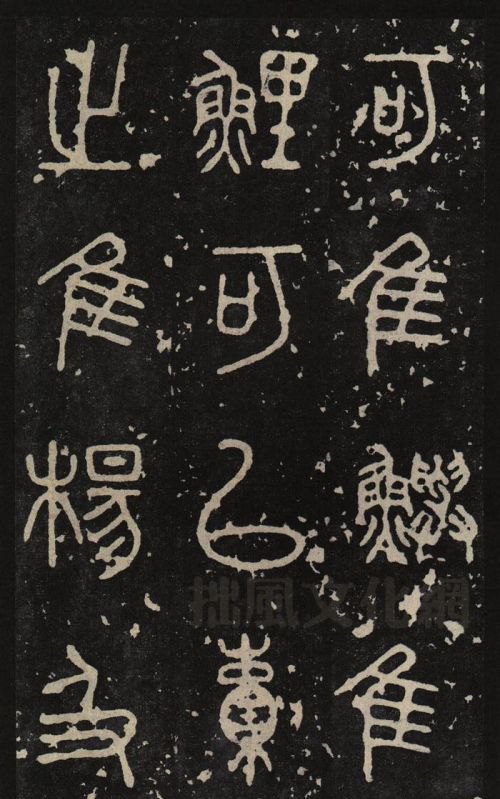 可隹鱮隹
鯉可以橐
之隹楊及
拙風文化網